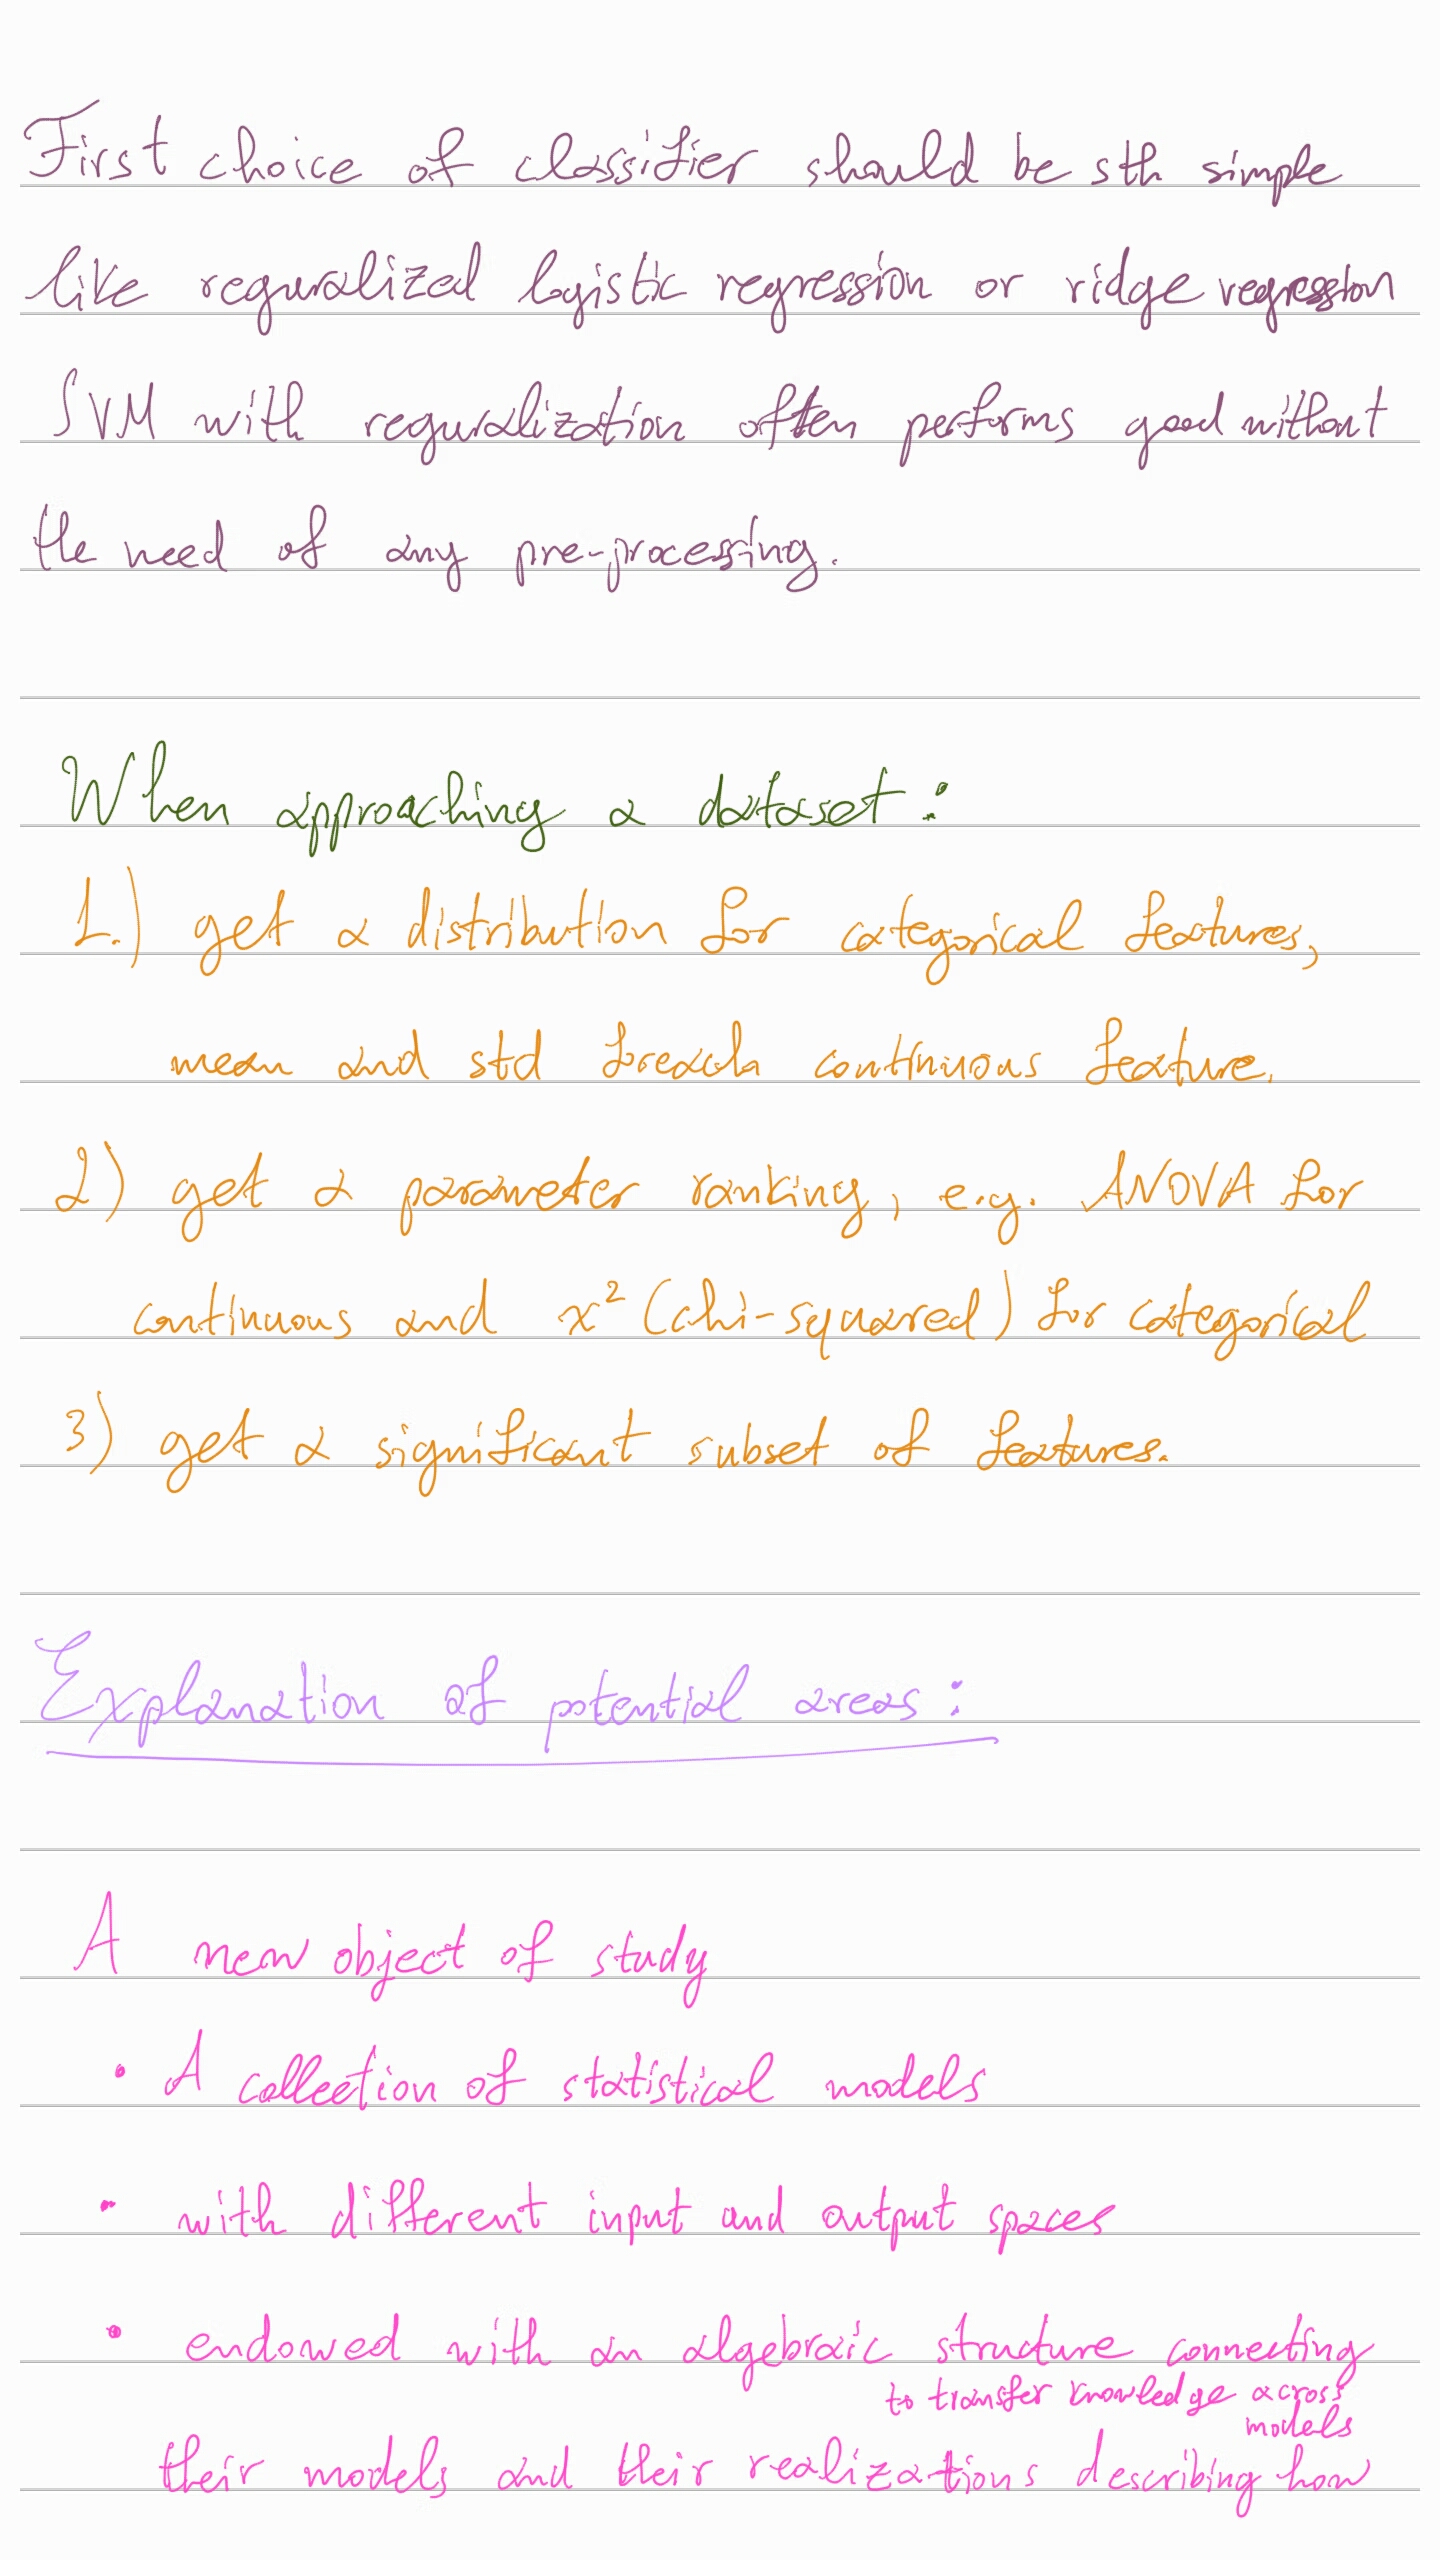 First choice of classifier should be sth simple
like reguralized logistic regression or ridge regression
SVM with reguralization often performs good without
the need of any pre-processing.
When approaching a dataset:
1.) get a distribution for categorical features,
mean and std for each continuous feature.
2) get a parameter ranking, e.g. ANOVA for
continuous and x² (chi-squared) for categorical
3) get a significant subset of features.
Explanation of potential areas:
A new object of study
• A collection of statistical models
• with different input and output spaces
• endowed with an algebraic structure connecting
to transfer knowledge across
models
their models and their realizations describing how